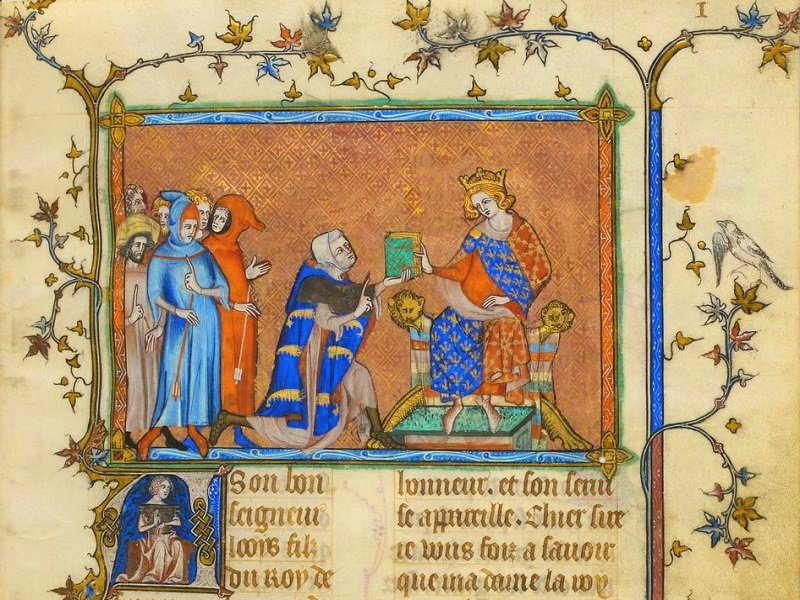 1
A Son bon
seigneur
looys filz
du roy de
honneur. et son seruice
se appareille. Chier sire
ie vous foiz a sauoir
que ma dame la roy